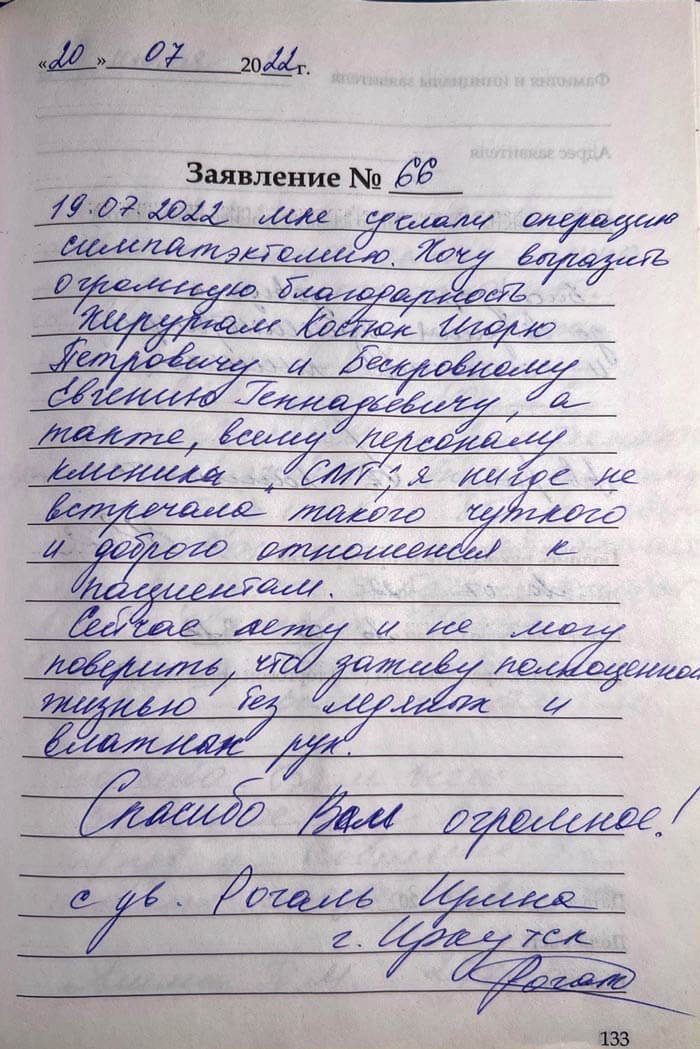 «20» 07 2022 г.
Заявление № 66
19.07.2022 мне сделали операцию
симпатэктомию. Хочу выразить
огромную благодарность
Хирургам Костюк Игорю
Петровичу и Бескровному
Евгению Геннадьевичу, а
также, всему персоналу
клиника "СМТ", я нигде не
встречала такого чуткого
и доброго отношения к
пациентам.
Сейчас лежу и не могу
поверить, что заживу полноценной
жизнью без ледяных и
влажных рук.
Спасибо Вам огромное!
с ув. Рогаль Ирина
г. Иркутск
133